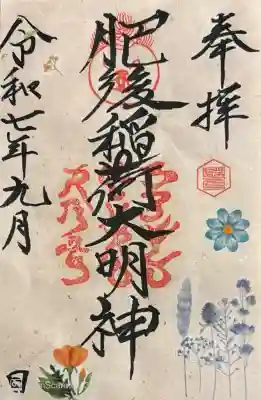 奉拝
肥後稲荷大明神
令和七年九月 日